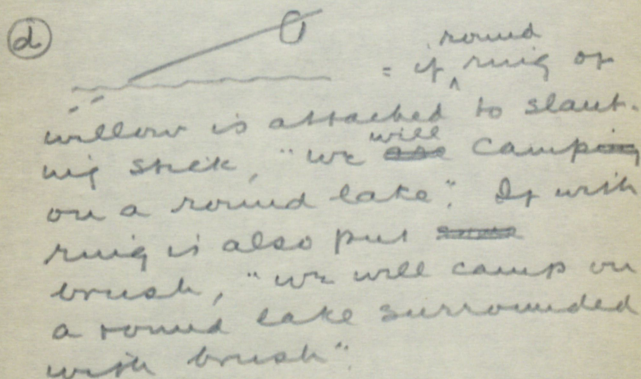 (d)
round
= if ^ ring of
willow is attached to slant-
ing stick, "we will camp
on a round lake". If with
ring is also put
brush, "we will camp on
a round lake surrounded
with brush".